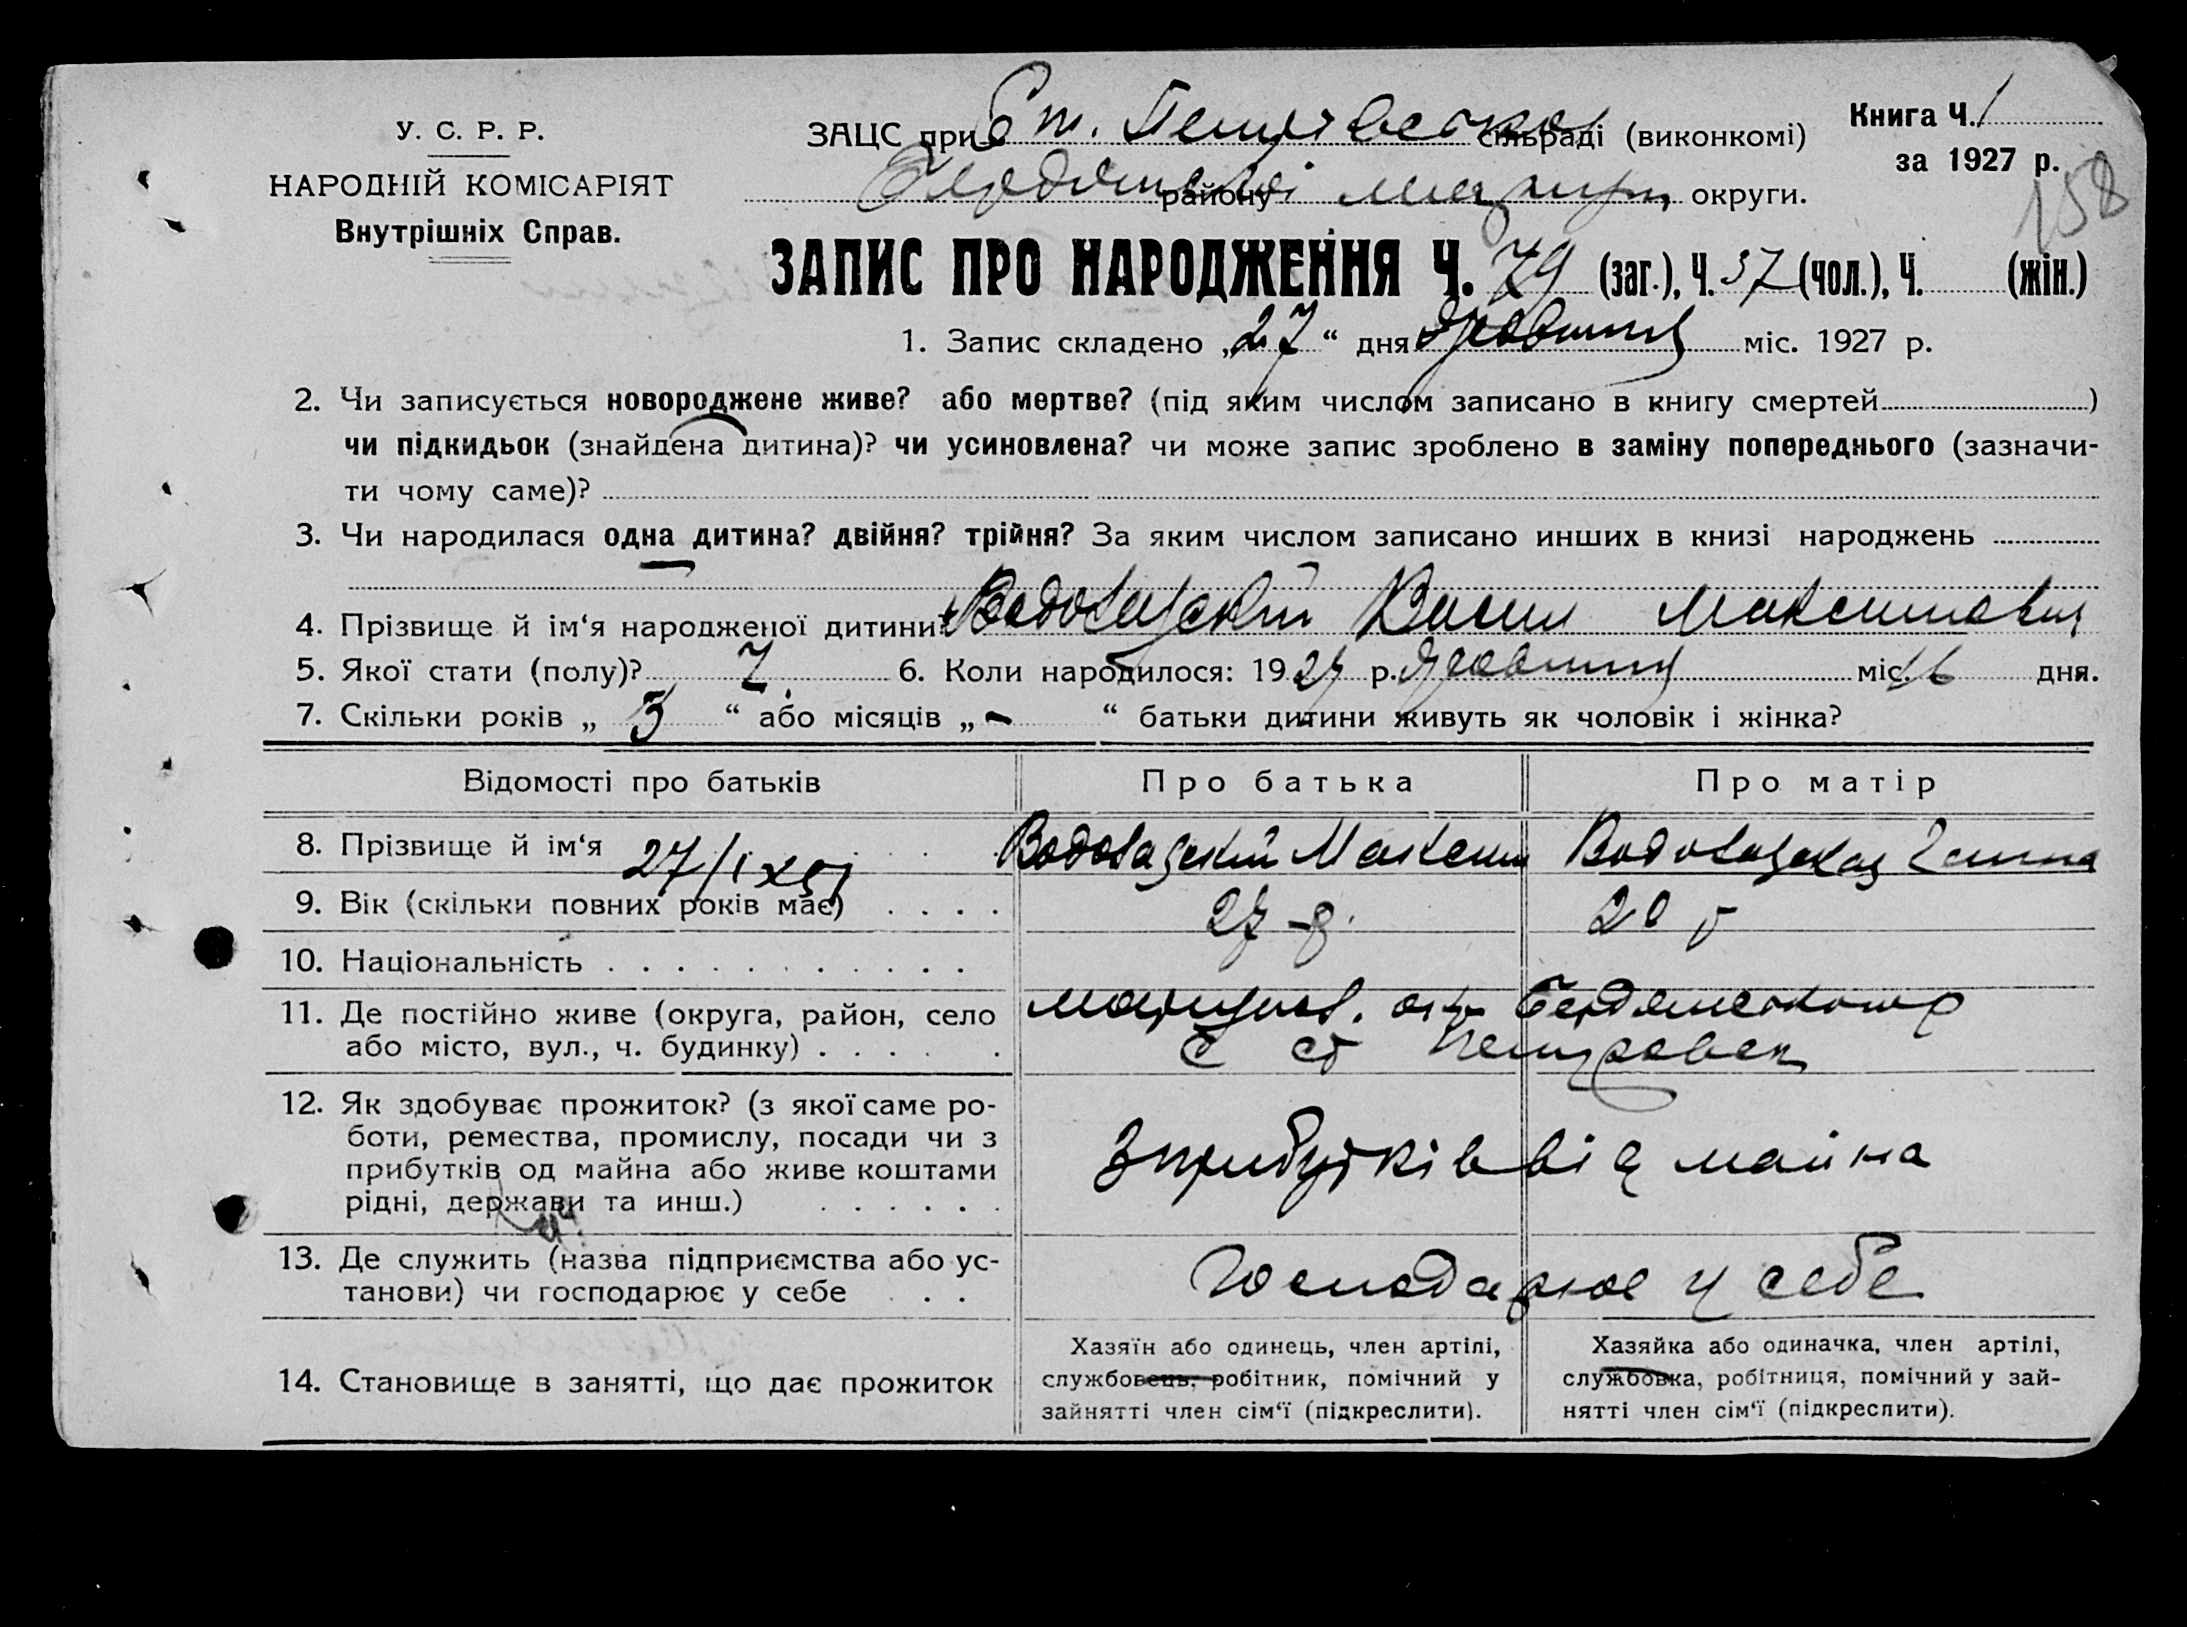 У. С. Р. Р.
НАРОДНІЙ КОМІСАРІЯТ
Внутрішніх Справ.
ЗАЦС при Ст. сільраді (виконкомі)
району округи.
Книга Ч. 1
за 1927 р.
158
ЗАПИС ПРО НАРОДЖЕННЯ Ч. 79 (заг.), Ч. 37 (чол.), Ч. (жін.)
1. Запис складено „27“ дня міс. 1927 р.
2. Чи записується новороджене живе? або мертве? (під яким числом записано в книгу смертей )
чи підкидьок (знайдена дитина)? чи усиновлена? чи може запис зроблено в заміну попереднього (зазначи-
ти чому саме)?
3. Чи народилася одна дитина? двійня? трійня? За яким числом записано инших в книзі народжень
4. Прізвище й ім‘я народженої дитини? Василь Максимович
5. Якої стати (полу)? Ч. 6. Коли народилося: 1927 р. міс. 16 дня.
7. Скільки років „ 3 “ або місяців „ - “ батьки дитини живуть як чоловік і жінка?
Відомості про батьків Про батька Про матір
8. Прізвище й ім‘я Максим
9. Вік (скільки повних років має) 27 20
10. Національність
11. Де постійно живе (округа, район, село
або місто, вул., ч. будинку)
12. Як здобуває прожиток? (з якої саме ро-
боти, ремества, промислу, посади чи з
прибутків од майна або живе коштами
рідні, держави та инш.)
з прибутків від майна
13. Де служить (назва підприємства або ус-
танови) чи господарює у себе
господарює у себе
14. Становище в занятті, що дає прожиток
Хазяїн або одинець, член артілі,
службовець, робітник, помічний у
зайнятті член сім‘ї (підкреслити).
Хазяйка або одиначка, член артілі,
службовка, робітниця, помічний у зай-
нятті член сім‘ї (підкреслити).